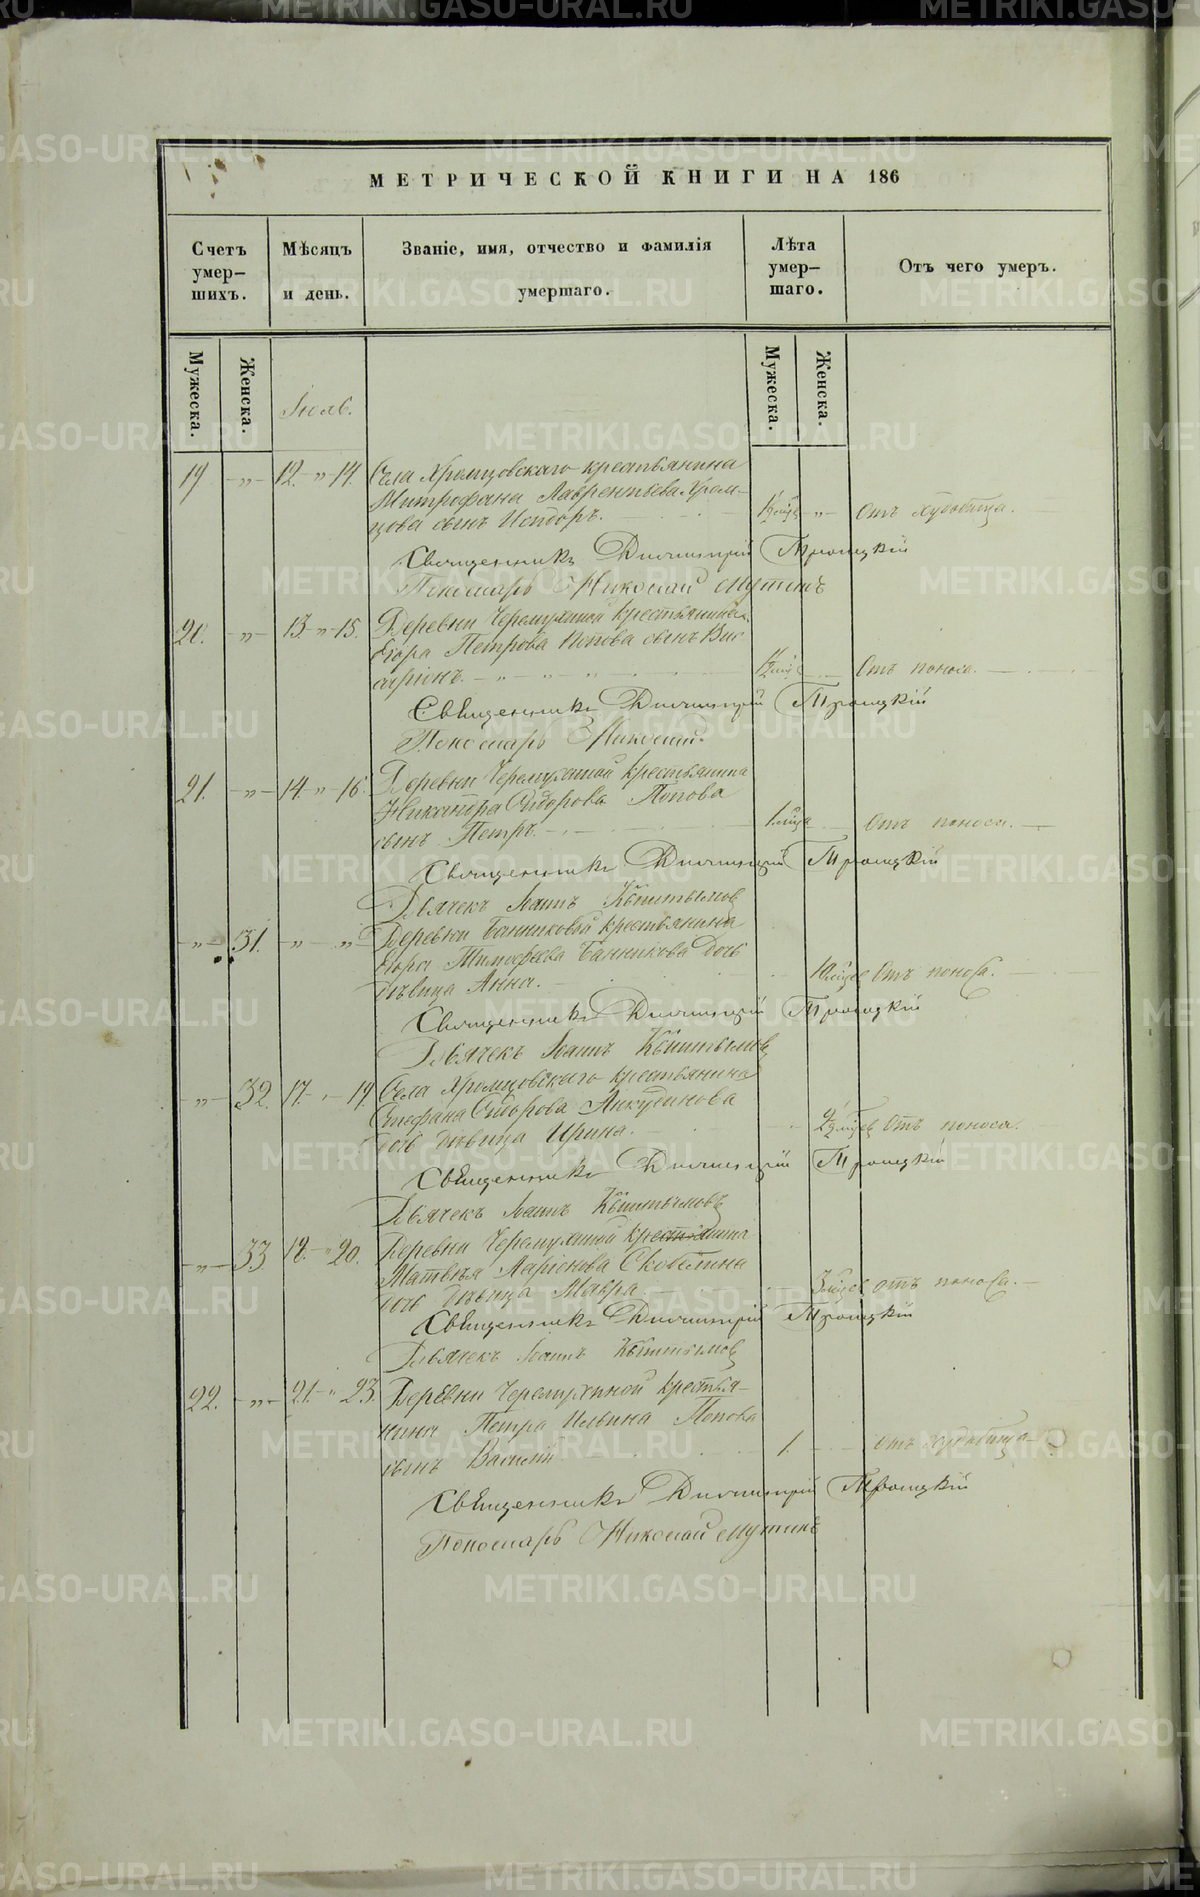 МЕТРИЧЕСКОЙ КНИГИ НА 186
Счетъ умер-шихъ. Мѣсяцъ и день. Званіе, имя, отчество и фамилія умершаго. Лѣта умер-шаго. Отъ чего умеръ.
Мужеска. Женска. Мужеска. Женска.
Іюль.
19 -„- 12. „ 14. Села Хромцовскаго крестьянина
Митрофана Лаврентьева Хром-
цова сынъ Исидоръ. „ Отъ худобища.
Священникъ Димитрій Троицкій
Пономарь Николай Мутинъ
20. -„- 13 „ 15. Деревни Черемухиной крестьянина
Егора Петрова Попова сынъ Вис-
саріонъ. Отъ поноса.
Священникъ Димитрій Троицкій
Пономарь Николай
21. -„- 14 „ 16. Деревни Черемухиной крестьянина
Никанора Сидорова Попова
сынъ Петръ. 1 мца Отъ поноса.
Священникъ Димитрій Троицкій
Дьячекъ Іоаннъ Кыштымов
-„- 31. „ „ Деревни Банниковой крестьянина
Егора Тимофеева Банникова дочь
дѣвица Анна. 10 мцев Отъ поноса.
Священникъ Димитрій Троицкій
Дьячекъ Іоаннъ Кыштымов
-„- 32. 17. „ 19. Села Хромцовскаго крестьянина
Стефана Сидорова Анкудинова
дочь дѣвица Ирина. Отъ поноса.
Священникъ Димитрій Троицкій
Дьячекъ Іоаннъ Кыштымовъ
-„- 33 18. „ 20. Деревни Черемухиной крестьянина
Матвѣя Ларіонова Скобелина
дочь дѣвица Мавра. отъ поноса.
Священникъ Димитрій Троицкій
Дьячекъ Іоаннъ Кыштымов
22. -„- 21. „ 23. Деревни Черемухиной крестья-
нина Петра Ильина Попова
сынъ Василій 1. отъ худобища
Священникъ Димитрій Троицкій
Пономарь Николай Мутинъ
METRIKI.GASO-URAL.RU